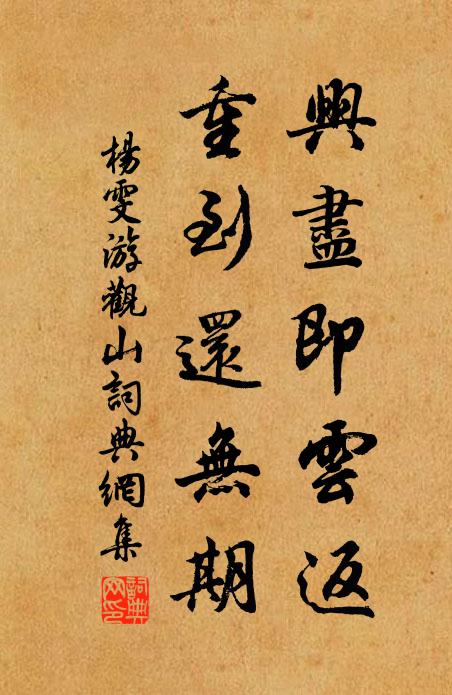 興盡即雲返
重到還無期
楊雯游觀山詞典網集
詞典網印